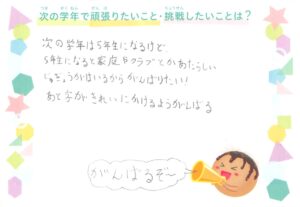 次の学年で頑張りたいこと・挑戦したいことは？
次の学年は5年生になるけど
5年生になると家庭科クラブとかあたらしい
じゅぎょうがはいるからがんばりたい!
あと字がきれいにかけるようがんばる
がんばるぞ〜